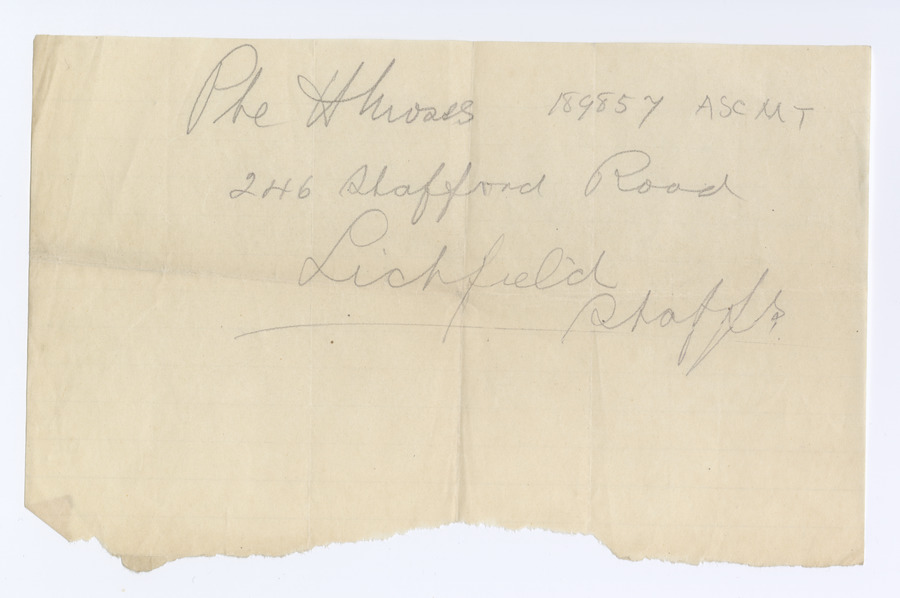 Pte H Moses 189857 ASC MT
246 Stafford Road
Lichfield
Staffs